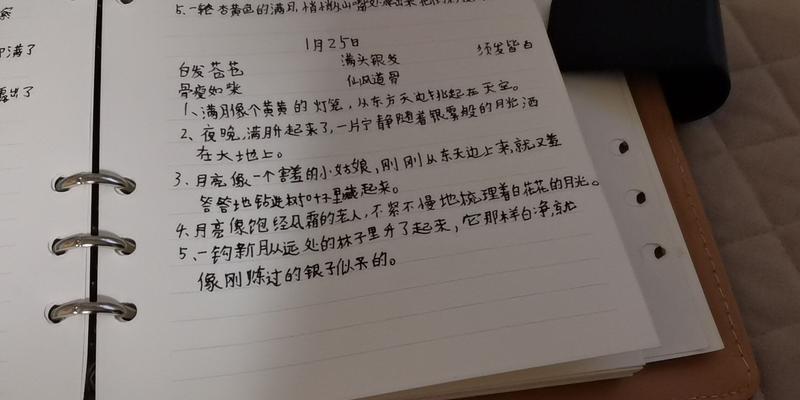 察
满了
露出了
5.一轮杏黄色的满月,悄悄从山嘴处
1月25日
白发苍苍 满头银发 须发皆白
骨瘦如柴 仙风道骨
1、满月像个黄黄的灯笼,从东方天边挑起在天空。
2、夜晚,满月升起来了,一片宁静随着银雾般的月光洒
在大地上。
3.月亮像一个害羞的小姑娘,刚刚从东天边上来,就又羞
答答地钻进树叶子里藏起来。
4.月亮像饱经风霜的老人,不紧不慢地梳理着白花花的月光。
5、一钩新月从远处的林子里升了起来,它那样白净,就
像刚炼过的银子似的。